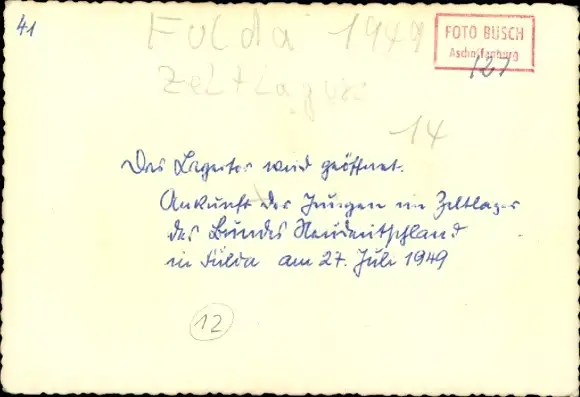 41
Fulda 1949
Zeltlager
FOTO BUSCH
Aschaffenburg
121
14
Das Lagertor wird geöffnet.
Ankunft der Jungen im Zeltlager
des Bundes Neudeutschland
in Fulda am 27. Juli 1949
12